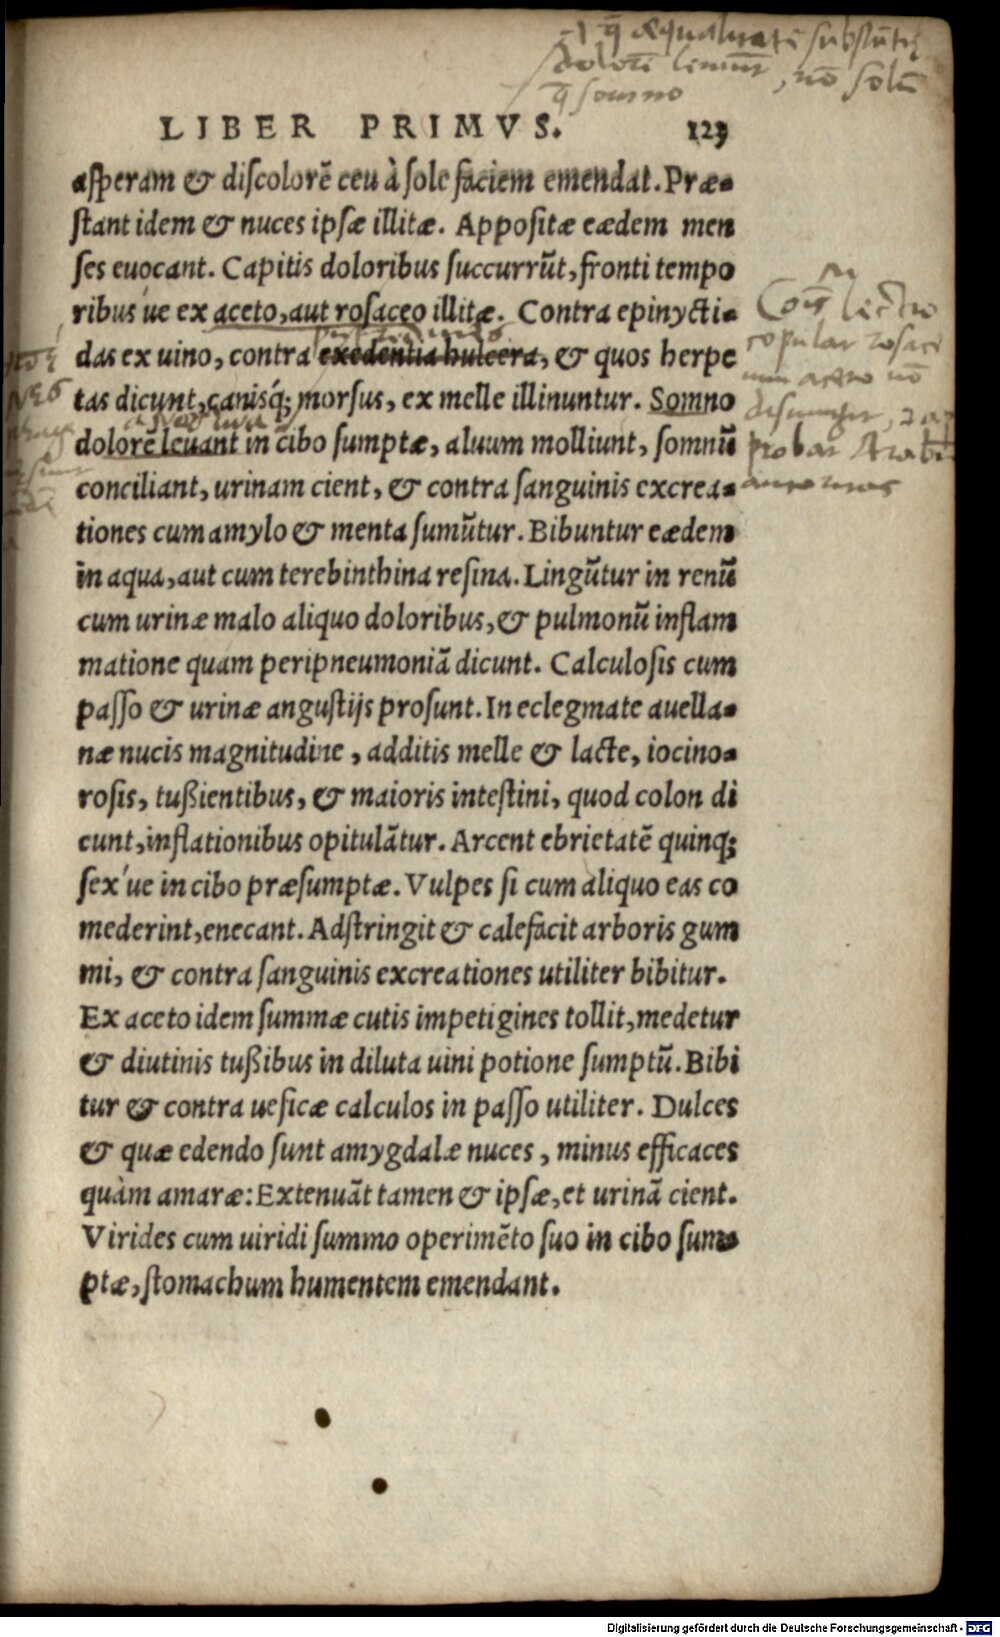 æqualitatē
dolorē leniūt, nō solū
somno
LIBER PRIMVS. 123
asperam & discolorē ceu à sole faciem emendat. Præ-
stant idem & nuces ipsæ illitæ. Appositæ eædem men
ses euocant. Capitis doloribus succurrūt, fronti tempo
ribus'ue ex aceto, aut rosaceo illitæ. Contra epinycti-
das ex uino, contra exedentia hulcera, & quos herpe
tas dicunt, canisq́; morsus, ex melle illinuntur. Somno
dolorē leuant in cibo sumptæ, aluum molliunt, somnū
conciliant, urinam cient, & contra sanguinis excrea-
tiones cum amylo & menta sumūtur. Bibuntur eædem
in aqua, aut cum terebinthina resina. Lingūtur in renū
cum urinæ malo aliquo doloribus, & pulmonū inflam
matione quam peripneumoniā dicunt. Calculosis cum
passo & urinæ angustijs prosunt. In eclegmate auella-
næ nucis magnitudine, additis melle & lacte, iocino-
rosis, tußientibus, & maioris intestini, quod colon di
cunt, inflationibus opitulātur. Arcent ebrietatē quinq;
sex'ue in cibo præsumptæ. Vulpes si cum aliquo eas co
mederint, enecant. Adstringit & calefacit arboris gum
mi, & contra sanguinis excreationes utiliter bibitur.
Ex aceto idem summæ cutis impetigines tollit, medetur
& diutinis tußibus in diluta uini potione sumptū. Bibi
tur & contra uesicæ calculos in passo utiliter. Dulces
& quæ edendo sunt amygdalæ nuces, minus efficaces
quàm amaræ: Extenuāt tamen & ipsæ, et urinā cient.
Virides cum uiridi summo operimēto suo in cibo sum-
ptæ, stomachum humentem emendant.
lectio
copulat rosac
aceto nō
probat
Digitalisierung gefördert durch die Deutsche Forschungsgemeinschaft - DFG